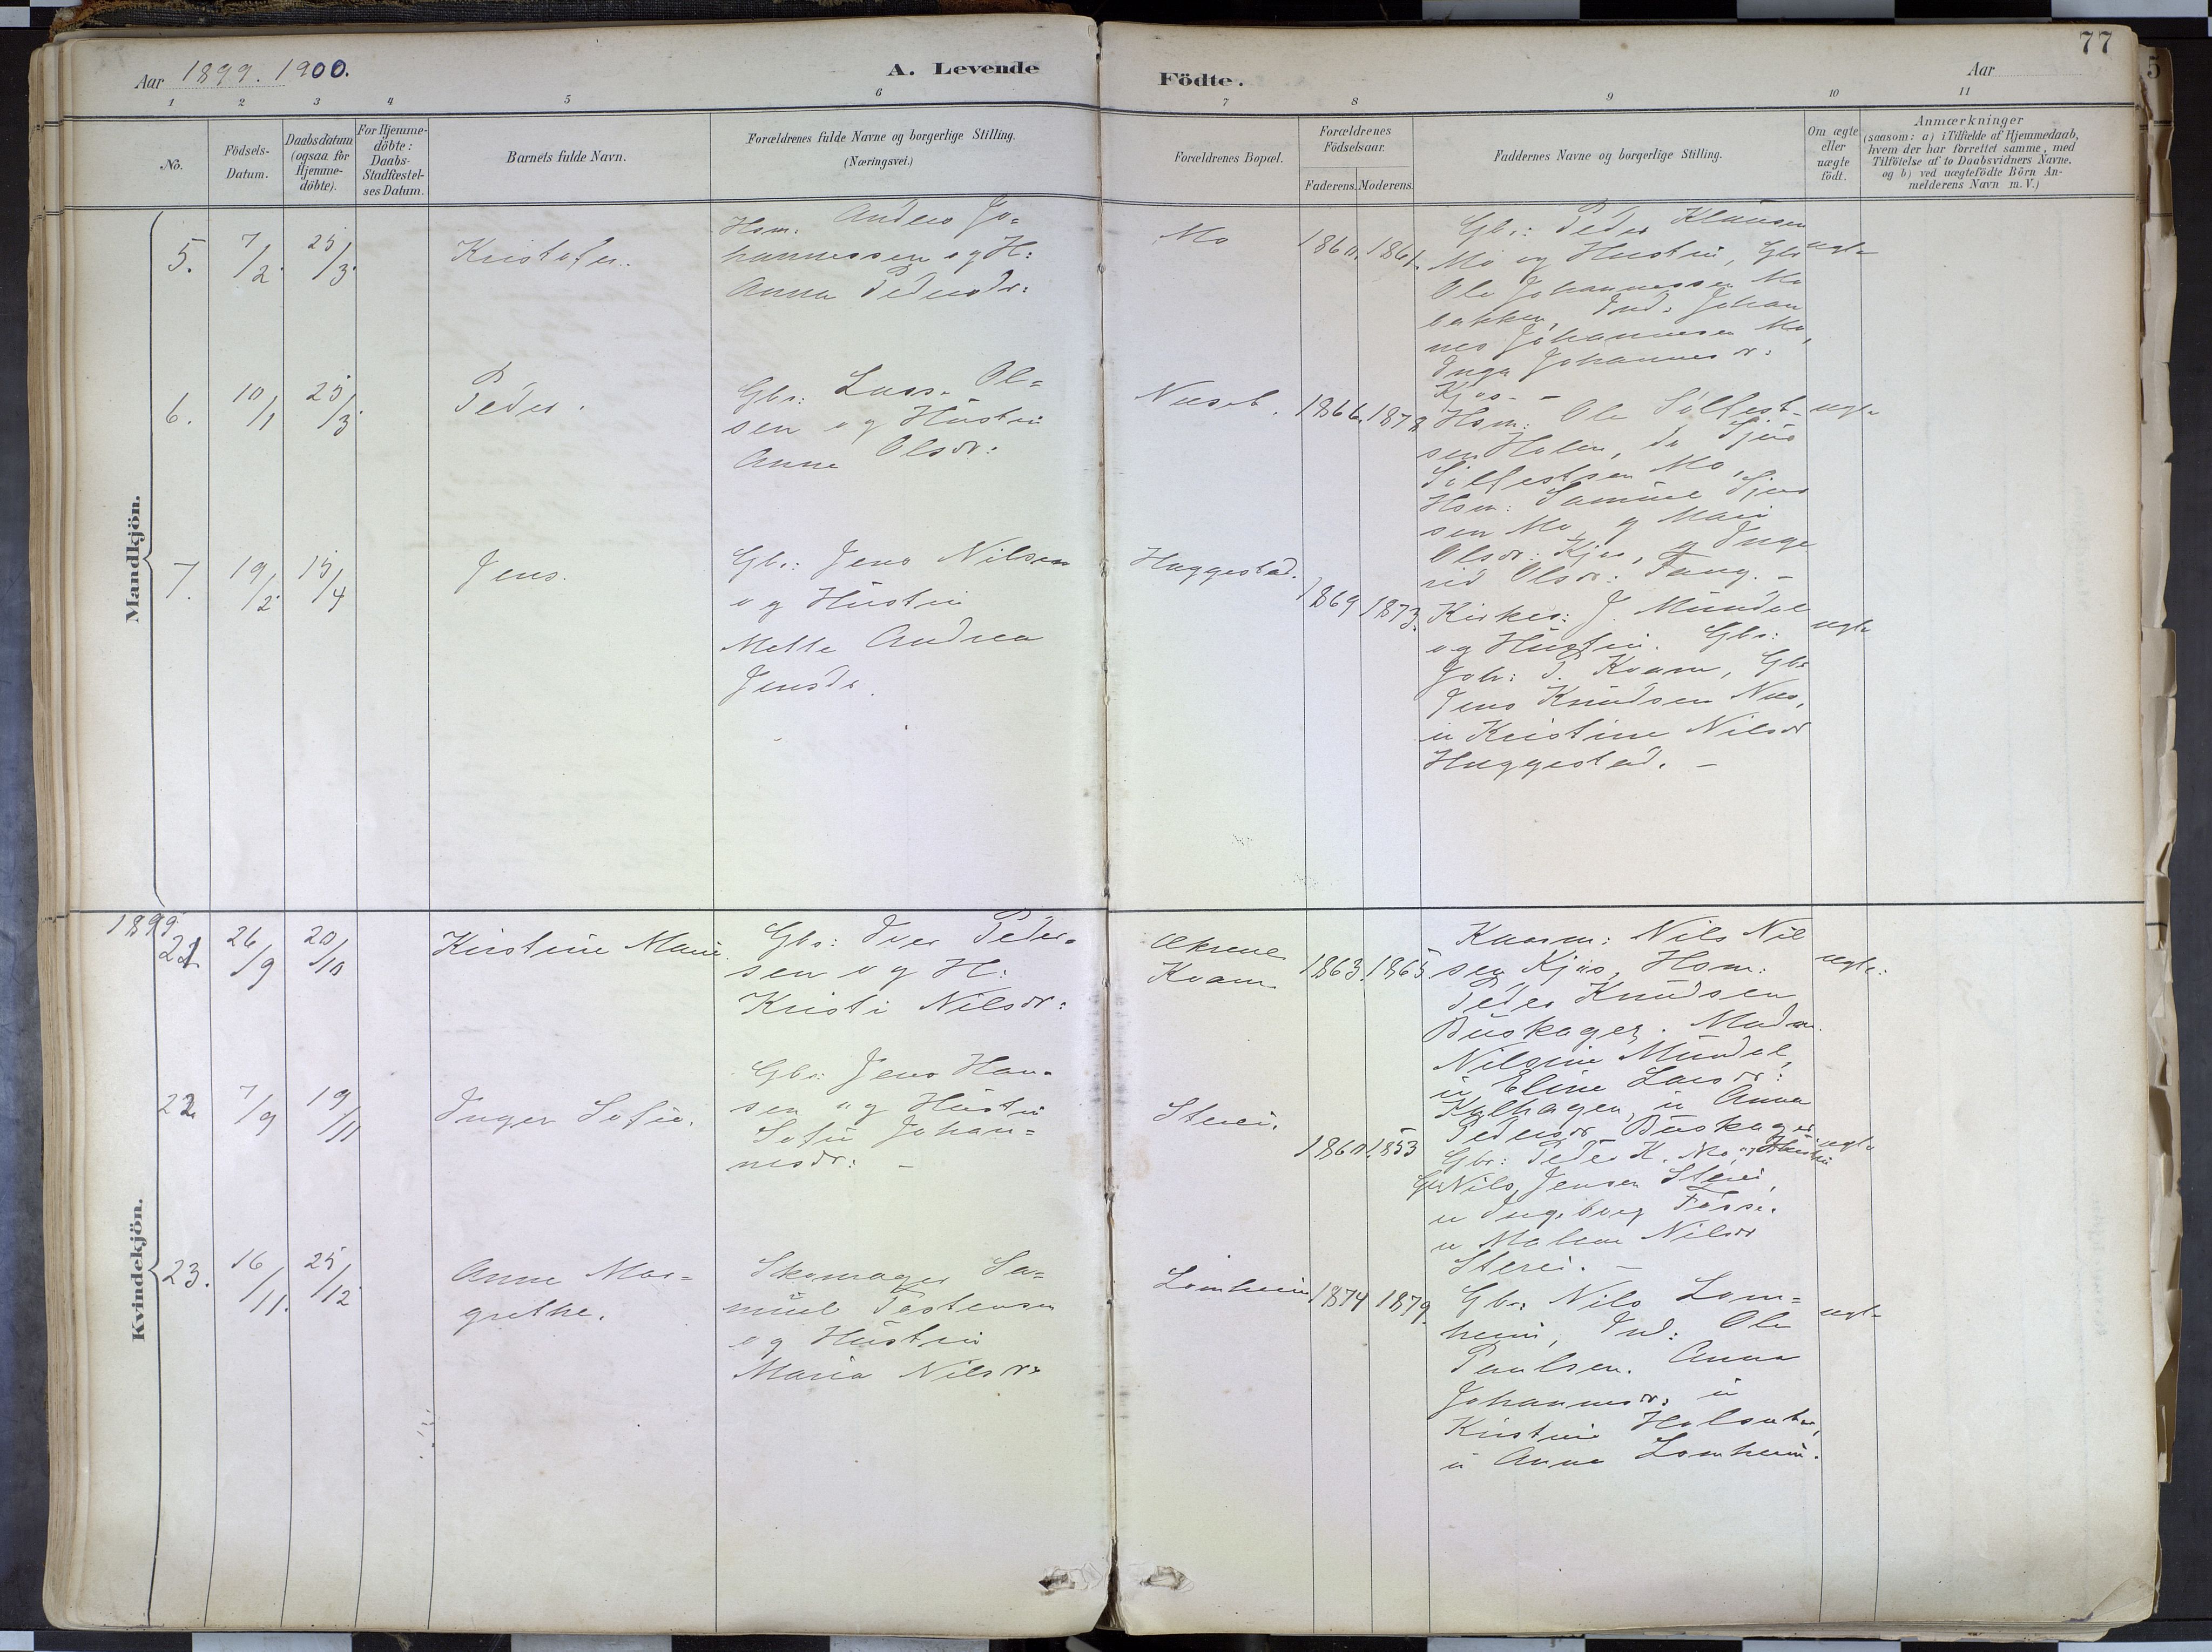 77
Aar 1899. 1900.
A. Levende
Födte.
Aar
5
1 2 3 4 5 6 7 8 9 10 11
No.
Födsels-
Datum.
Daabsdatum
(ogsaa for
Hjemme-
döbte).
For Hjemme-
döbte:
Daabs-
Stadfæstel-
ses Datum.
Barnets fulde Navn.
Forældrenes fulde Navne og borgerlige Stilling.
(Næringsvei.)
Forældrenes Bopæl.
Forældrenes
Födselsaar.
Faderens. Moderens.
Faddernes Navne og borgerlige Stilling.
Om ægte
eller
uægte
födt.
Anmærkninger
(saasom: a) i Tilfælde af Hjemmedaab,
hvem der har forrettet samme, med
Tilföielse af to Daabsvidners Navne,
og b) ved uægtefödte Börn An-
melderens Navn m. V.)
Mandkjön.
5.
7/2.
25/3.
Kristofer.
Hsm. Anders Jo=
hannessen og H:
Anna Pedersdr:
Mo
1860. 1861.
Gbr: Peder Klausen
Mo og Hustru, Gbr
Ole Johannessen Mo
bakken, Ind: Johan
nes Johannessen Mo,
Inga Johannesdr:
Kjos. -
ægte
6.
10/1
25/3.
Peder.
Gbr: Lasse Ol=
sen og Hustru
Anne Olsdr:
1866. 1878
Hsm: Ole Sølfest-
sen Holen, do Sjur
Sølfestsen Mo,
Hsm: Samuel Sjur
sen Mo, og Mari
Olsdr: Kjos, og Inge
rid Olsdr: Fang. -
ægte
7.
19/2.
15/4
Jens.
Gbr: Jens Nilsen
og Hustru
Mette Andrea
Jensdr.
Haggestad.
1869 1873.
Kirkes: J. Mundal
og Hustru. Gbr:
Joh: P. Kvam, Gbr
Jens Knudsen Nes,
u Kristine Nilsdr
Haggestad. -
ægte
Kvindekjön.
1899
21
26/9
20/10
Kirstine Marie.
Gbr: Iver Peder=
sen og H:
Kristi Nilsdr:
Økrene
Kvam
1863. 1865
Kaarm: Nils Nil
sen Kjos, Hsm:
Peder Knudsen
Buskager. Madm.
Nilsine Mundal,
u Eline Larsdr:
Kalhagen, u Anna
Pedersdr Buskager
ægte:
22
7/9
19/11
Inger Sofie.
Gbr: Jens Han=
sen og Hustru
Sofie Johan=
nesdr: -
Sterei.
1860. 1853
Gbr: Peder K. Mo, og Hustru
Gbr Nils Jensen Sterei,
u Ingeborg Fosse.
u Malene Nilsdr
Sterei. -
ægte
23.
16/11.
25/12
Anne Mar=
grethe.
Skomager Sa=
muel Testensen
og Hustru
Maria Nilsdr:
Lomheim
1874 1879.
Gbr: Nils Lom=
heim, Ind: Ole
Paulsen. Anna
Johannesdr: u
Kristine Holsæter,
u Anna Lomheim.
ægte